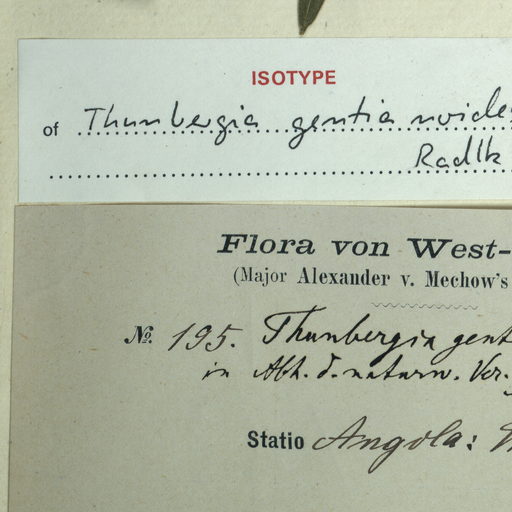 ISOTYPE
of Thunbergia gentianoides
Radlk
Flora von West-
(Major Alexander v. Mechow's
№ 195. Thunbergia gent
in Abh. d. naturw. Ver.
Statio Angola: